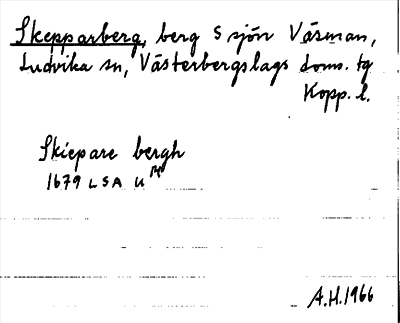 Skepparberg, berg S sjön Väsman,
Ludvika sn, Västerbergslags doms. tg
Kopp. l.
Skiepare bergh
1679 LSA U 14
A.H. 1966